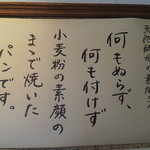 天然酵母の素焼
何もぬらず、
何も付けず
小麦粉の素顔の
まゝで焼いた
パンです。